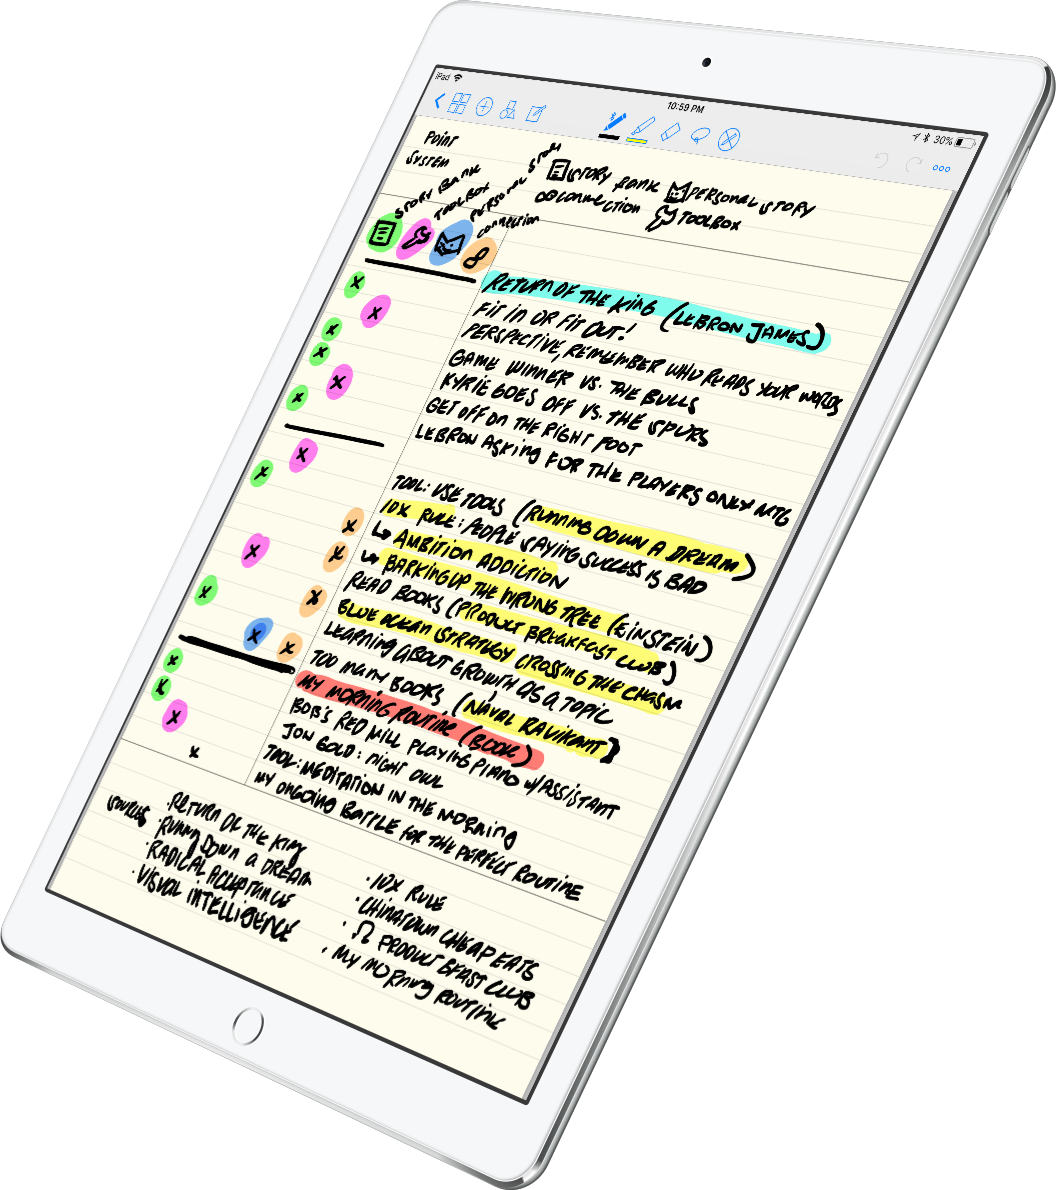 iPad
10:59 PM
30%
POINT
SYSTEM
STORY BANK
TOOLBOX
PERSONAL STORY
CONNECTION
STORY BANK PERSONAL STORY
CONNECTION TOOLBOX
RETURN OF THE KING (LEBRON JAMES)
FIT IN OR FIT OUT!
PERSPECTIVE, REMEMBER WHO READS YOUR WORDS
GAME WINNER VS. THE BULLS
KYRIE GOES OFF VS. THE SPURS
GET OFF ON THE RIGHT FOOT
LEBRON ASKING FOR THE PLAYERS ONLY MTG
TOOL: USE TOOLS (RUNNING DOWN A DREAM)
10X RULE: PEOPLE SAYING SUCCESS IS BAD
↳ AMBITION ADDICTION
↳ BARKING UP THE WRONG TREE (EINSTEIN)
READ BOOKS (PRODUCT BREAKFAST CLUB)
BLUE OCEAN STRATEGY CROSSING THE CHASM
LEARNING ABOUT GROWTH AS A TOPIC
TOO MANY BOOKS, (NAVAL RAVIKANT)
MY MORNING ROUTINE (BOOK)
BOB'S RED MILL PLAYING PIANO W/ASSISTANT
JON GOLD: NIGHT OWL
TOOL: MEDITATION IN THE MORNING
MY ONGOING BATTLE FOR THE PERFECT ROUTINE
SOURCES
· RETURN OF THE KING
· RUNNING DOWN A DREAM
· RADICAL ACCEPTANCE
· VISUAL INTELLIGENCE
· 10X RULE
· CHINATOWN CHEAP EATS
· PRODUCT BFAST CLUB
· MY MORNING ROUTINE